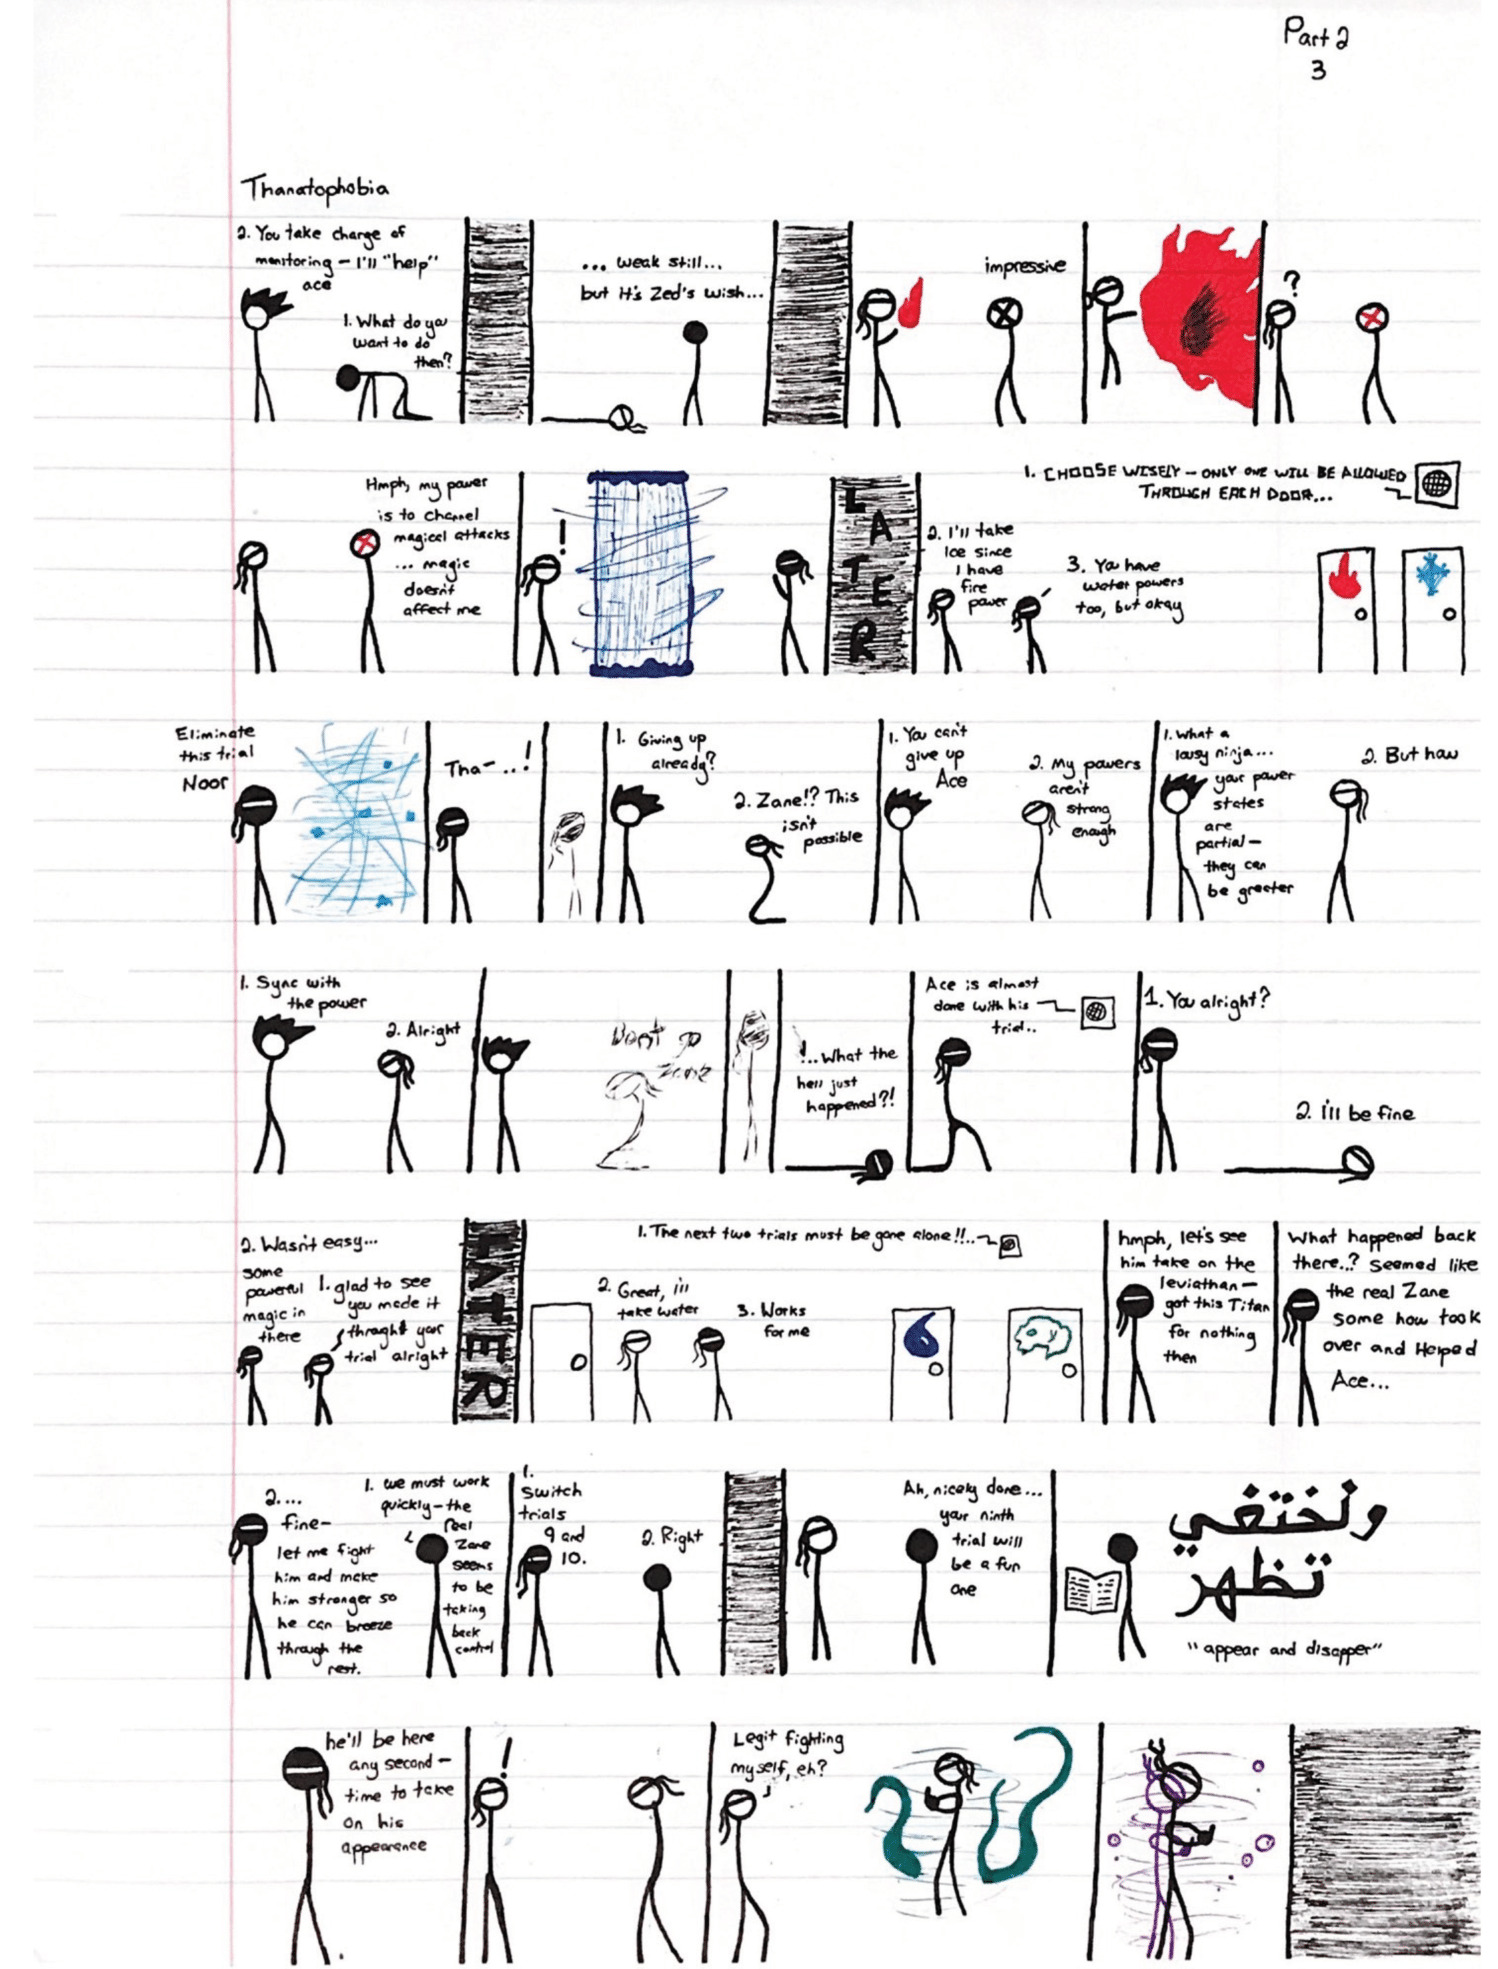 Part 2
3
Thanatophobia
2. You take charge of
monitoring – I'll "help"
ace
1. What do you
want to do
then?
... weak still...
but it's Zed's wish...
impressive
?
Hmph, my power
is to channel
magical attacks
... magic
doesn't
affect me
!
LATER
1. CHOOSE WISELY – ONLY ONE WILL BE ALLOWED
THROUGH EACH DOOR...
2. I'll take
Ice since
I have
fire
power
3. You have
water powers
too, but okay
Eliminate
this trial
Noor
Tha-...!
1. Giving up
already?
2. Zane!? This
isn't
possible
1. You can't
give up
Ace
2. My powers
aren't
strong
enough
1. What a
lousy ninja...
your power
states
are
partial–
they can
be greater
2. But how
1. Sync with
the power
2. Alright
Dont go
Zane
!...What the
hell just
happened?!
Ace is almost
done with his
trial..
1. You alright?
2. i'll be fine
2. Wasn't easy...
some
powerful
magic in
there
1. glad to see
you made it
throught your
trial alright
LATER
1. The next two trials must be gone alone!!..
2. Great, i'll
take water
3. Works
for me
hmph, let's see
him take on the
leviathan–
got this Titan
for nothing
then
What happened back
there..? Seemed like
the real Zane
some how took
over and Helped
Ace...
1. we must work
quickly–the
real
Zane
seems
to be
taking
back
control
2. ...
fine–
let me fight
him and make
him stronger so
he can breeze
through the
rest.
1.
Switch
trials
9 and
10.
2. Right
Ah, nicely done...
your ninth
trial will
be a fun
one
ولختفي
تظهر
"appear and disapper"
he'll be here
any second–
time to take
on his
appearence
!
Legit fighting
myself, eh?